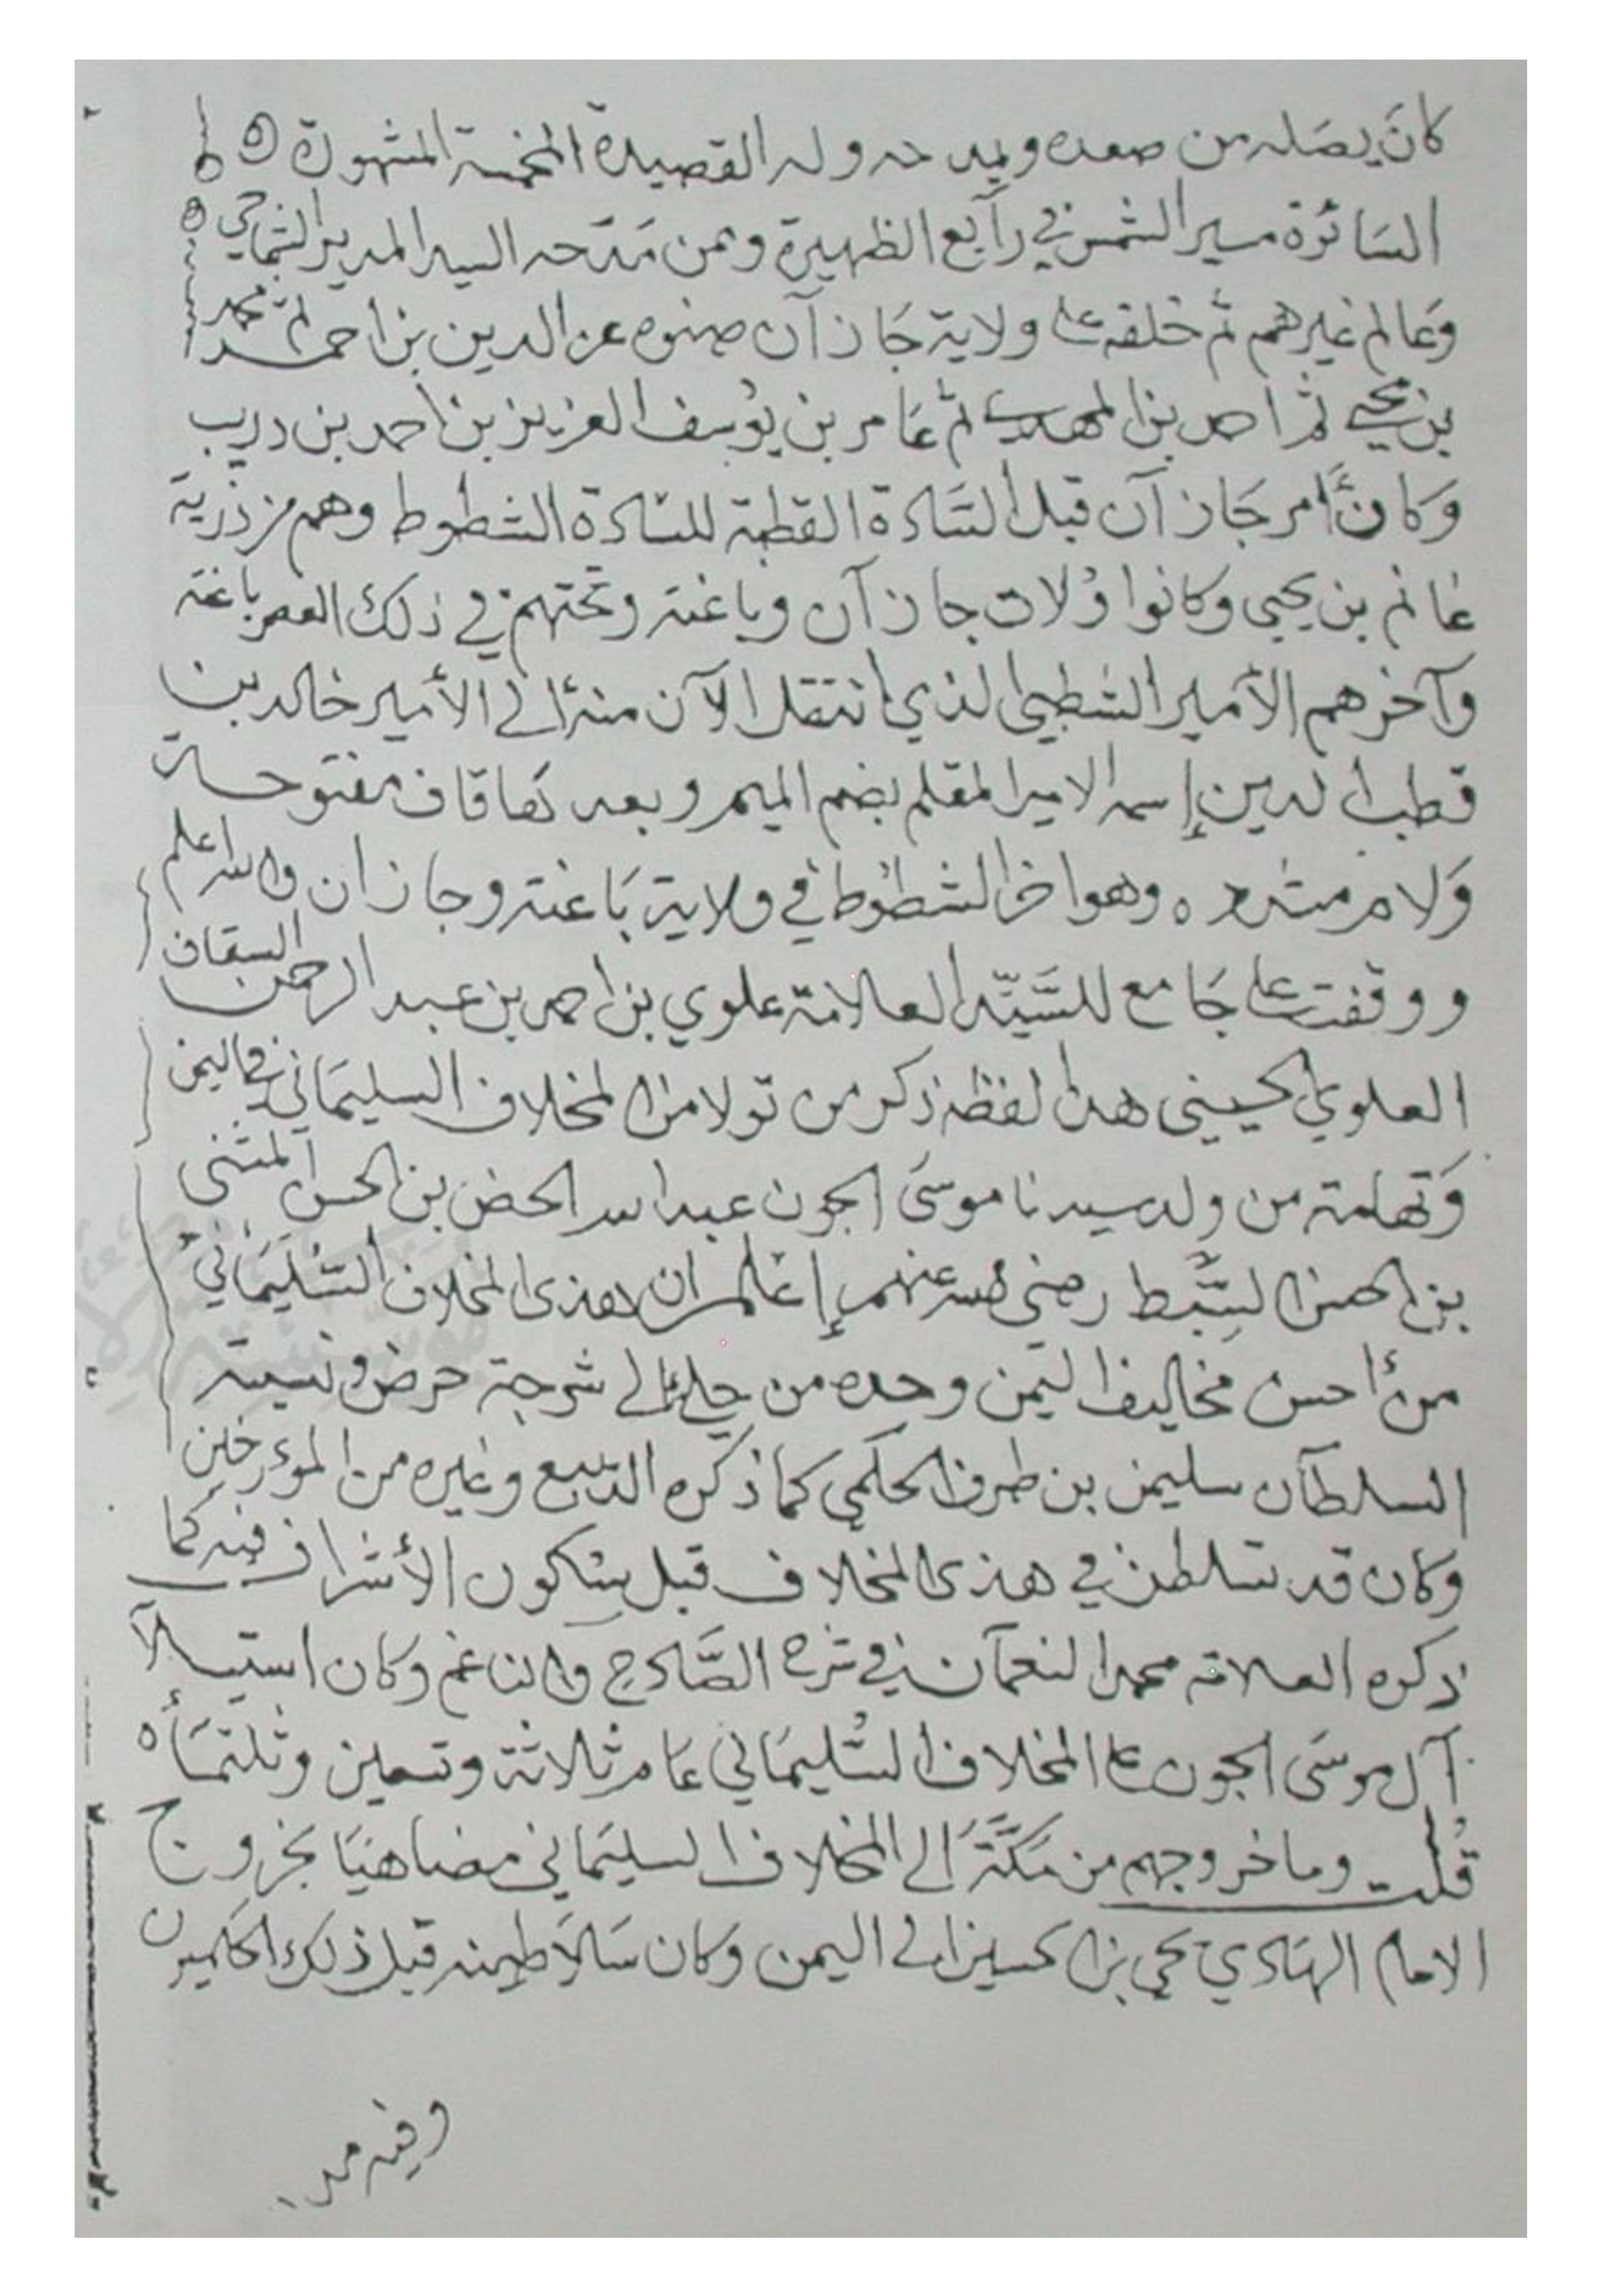 كانَ يصَله من صعده ويمدحه وله القصيدة المخمسة المشهورة
السَائرة مسير الشمس في رآبع الظهيرة وممن مَدَحه السيد المدير الشماخي
وَعالم غيرهم ثم خلفه على ولاية جَازآن صنوه عز الدين بن احمد ثم محمد
بن يحيى ثم احمد بن المهدي ثم عَامر بن يوُسف العزيز بن احمد بن دريب
وَكانَ أمر جَازآن قبل السَادة القطبة للسَادة الشطوط وهم من ذرية
غانم بن يحيى وكانوا وُلات جازآن وباغته وتختهم في ذلك العصر باغته
وآخرهم الأمير الشطي الذي انتقل الآن منه إلى الأمير خالد بن
قطب الدين إسمه الامير المقلم بضم الميم وبعدهَا قاف مفتوحة
وَلام مشدده وهو اخر الشطوُط في ولاية بَاغته وجازان والله اعلم
ووقفت على جَامع للسَّيّد العلامة علوي بن احمد بن عبد الرحمن السقاف
العلوي الحسيني هذا لفظه ذكر من تولا من المخلاف السليمَاني في اليمن
وَتهامة من ولد سيدنا موسىَ الجون عبد الله المحض بن الحسن المثنى
بن الحسن السِّبط رضي الله عنهم إعلم ان هذى المخلاف السُليمَاني
من أحسن مخاليف اليمن وحده من حلي إلى شرجة حرض ونسبته
السلطآن سليمن بن طرف الحكَمي كما ذكره الديبع وغيره من الموءرخين
وكان قد تسلطن في هذى المخلاف قبل يتكون الأشراف فيه كما
ذكره العلامه محمد النعمآن في شرح الصَّادح والناغم وكان استيلآ
آل موسىَ الجون على المخلاف السُليمَاني عَام ثلاثة وتسعين وثلثمَأه
قُلت وما خروجهم من مَكَّةَ الى المخلاف السليمَاني مضاهيَا بخروج
الامام الهَادي يحي بن الحسين الى اليمن وكان سَلاَطينه قبل ذلك الحكميون
وفيه